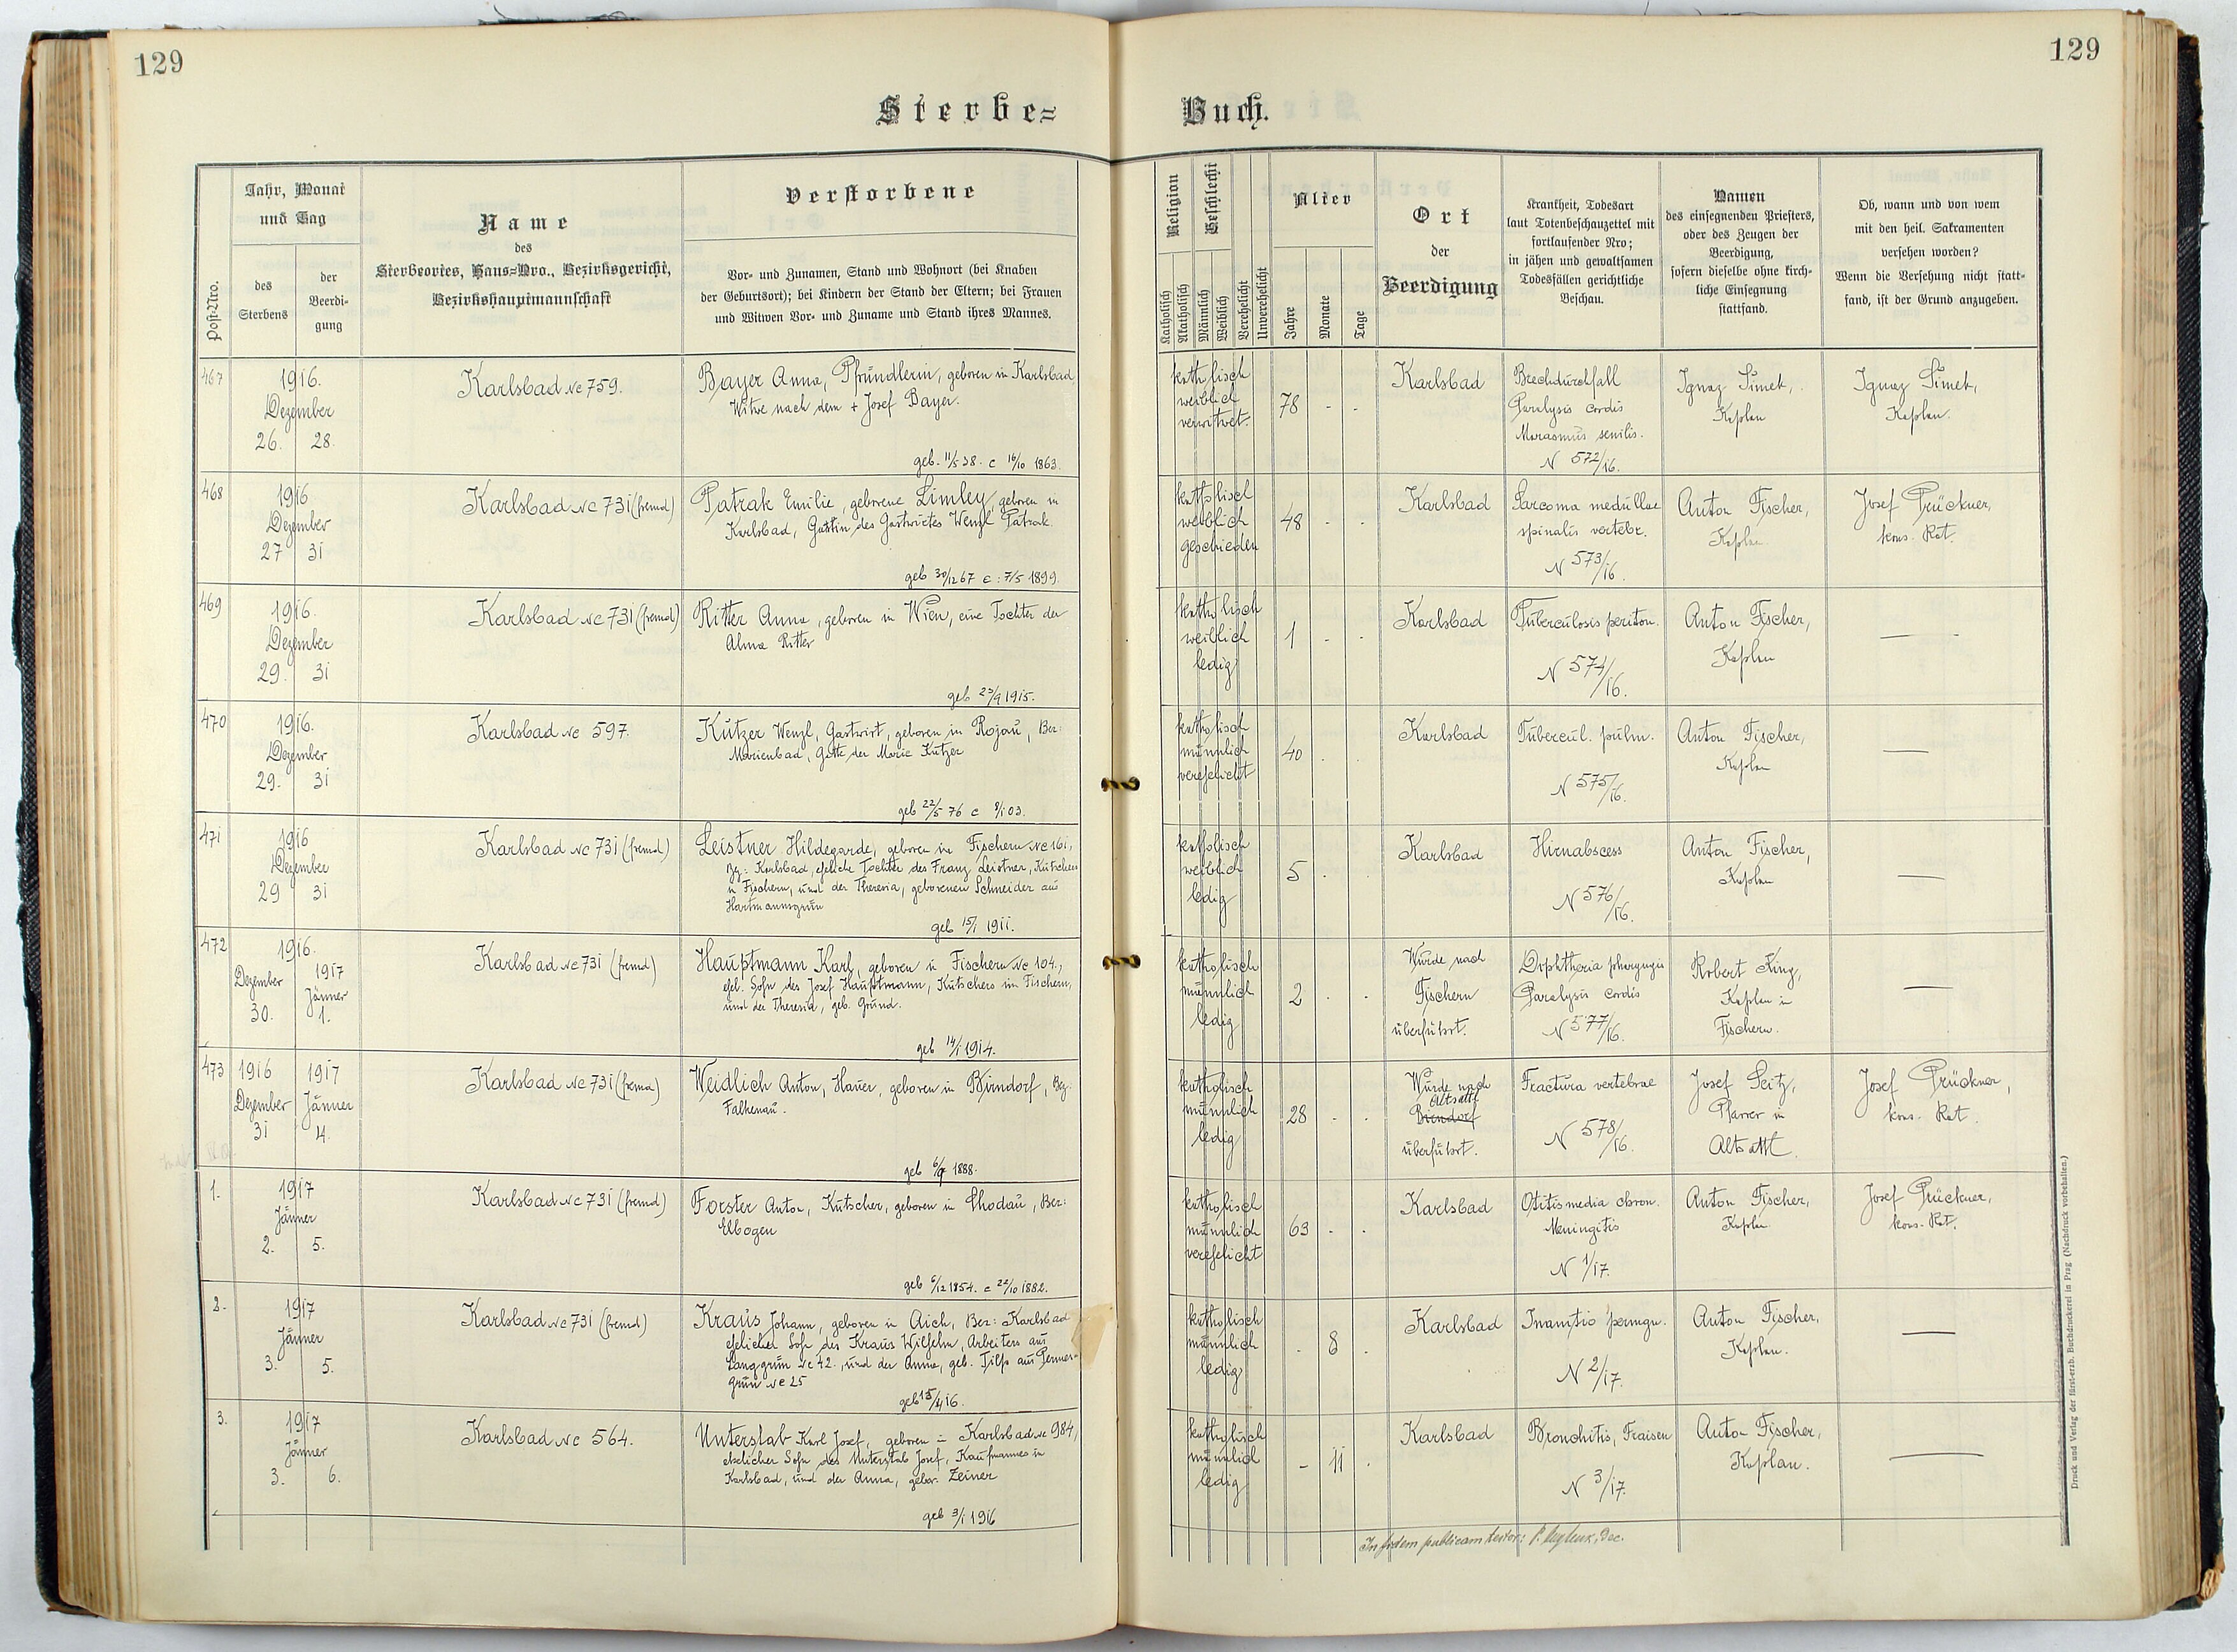 129
129
Sterbe=
Buch.
Post-Nro.
Jahr, Monat
und Tag
des
Sterbens
der
Beerdi-
gung
Name
des
Sterbeortes, Haus=Nro., Bezirksgericht,
Bezirkshauptmannschaft
Verstorbene
Vor- und Zunamen, Stand und Wohnort (bei Knaben
der Geburtsort); bei Kindern der Stand der Eltern; bei Frauen
und Witwen Vor- und Zuname und Stand ihres Mannes.
Religion
Katholisch
Akatholisch
Geschlecht
Männlich
Weiblich
Verehelicht
Unverehelicht
Alter
Jahre
Monate
Tage
Ort
der
Beerdigung
Krankheit, Todesart
laut Totenbeschauzettel mit
fortlaufender Nro;
in jähen und gewaltsamen
Todesfällen gerichtliche
Beschau.
Namen
des einsegnenden Priesters,
oder des Zeugen der
Beerdigung,
sofern dieselbe ohne kirch-
liche Einsegnung
stattfand.
Ob, wann und von wem
mit den heil. Sakramenten
versehen worden?
Wenn die Versehung nicht statt-
fand, ist der Grund anzugeben.
467
1916.
Dezember
26. 28.
Karlsbad Nc 759.
Bayer Anna, Pfründlerin, geboren in Karlsbad,
Witwe nach dem + Josef Bayer.
geb. 11/5 38. c 16/10 1863.
katholisch
weiblich
verwitwet.
78 - -
Karlsbad
Brechdurchfall
Paralysis cordis
Marasmus senilis.
N 572/16.
Ignaz Simek,
Kaplan
Ignaz Simek,
Kaplan.
468
1916
Dezember
27 31
Karlsbad Nc 731 (fremd)
Patrak Emilie, geborene Limley, geboren in
Karlsbad, Gattin des Gastwirtes Wenzl Patrak.
geb 30/12 67 c: 7/5 1899.
katholisch
weiblich
geschieden
48 - -
Karlsbad
Sarcoma medullae
spinalis vertebr.
N 573/16.
Anton Fischer,
Kaplan
Josef Prückner,
kons. Rat.
469
1916.
Dezember
29. 31
Karlsbad Nc 731 (fremd)
Ritter Anna, geboren in Wien, eine Tochter der
Alma Ritter
geb 23/9 1915.
katholisch
weiblich
ledig
1 - -
Karlsbad
Tuberculosis periton.
N 574/16.
Anton Fischer,
Kaplan
470
1916.
Dezember
29. 31
Karlsbad Nc 597.
Kutzer Wenzl, Gastwirt, geboren in Rojau, Bez:
Marienbad, Gatte der Marie Kutzer
geb 22/5 76 c 8/1 03.
katholisch
männlich
verehelicht
40 . .
Karlsbad
Tubercul. pulm.
N 575/16.
Anton Fischer,
Kaplan
471
1916
Dezember
29 31
Karlsbad Nc 731 (fremd)
Leistner Hildegarde, geboren in Fischern Nc 161,
Bz: Karlsbad, eheliche Tochter des Franz Leistner, Kutschers
in Fischern, und der Theresia, geborenen Schneider aus
Hartmannsgrün
geb 15/1 1911.
katholisch
weiblich
ledig
5 . .
Karlsbad
Hirnabscess
N 576/16.
Anton Fischer,
Kaplan
472
1916.
Dezember 1917
Jänner
30. 1.
Karlsbad Nc 731 (fremd)
Hauptmann Karl, geboren in Fischern Nc 104.,
ehel. Sohn des Josef Hauptmann, Kutschers in Fischern,
und der Theresia, geb. Grund.
geb 14/1 1914.
katholisch
männlich
ledig
2 . .
Wurde nach
Fischern
überführt.
Diphtheria pharyngis
Paralysis cordis
N 577/16.
Robert King,
Kaplan in
Fischern.
473
1916 1917
Dezember Jänner
31 4.
Karlsbad Nc 731 (fremd)
Weidlich Anton, Hauer, geboren in Birndorf, Bez:
Falkenau.
geb 6/9 1888.
katholisch
männlich
ledig
28 . .
Wurde nach
Altsattl
Birndorf
überführt.
Fractura vertebrae
N 578/16.
Josef Seitz,
Pfarrer in
Altsattl.
Josef Prückner,
kons. Rat.
1.
1917
Jänner
2. 5.
Karlsbad Nc 731 (fremd)
Forster Anton, Kutscher, geboren in Chodau, Bez:
Elbogen
geb 6/12 1854. c 22/10 1882.
katholisch
männlich
verehelicht
63 . .
Karlsbad
Otitis media chron.
Meningitis
N 1/17.
Anton Fischer,
Kaplan
Josef Prückner,
kons. Rat.
2.
1917
Jänner
3. 5.
Karlsbad Nc 731 (fremd)
Kraus Johann, geboren in Aich, Bez: Karlsbad
ehelicher Sohn des Kraus Wilhelm, Arbeiters aus
Langgrün Nc 42., und der Anna, geb. Tilp aus
grün Nc 25
geb 15/4 16.
katholisch
männlich
ledig
. 8 .
Karlsbad
Inanitio
N 2/17.
Anton Fischer,
Kaplan.
3.
1917
Jänner
3. 6.
Karlsbad Nc 564.
Unterstab Karl Josef, geboren in Karlsbad Nc 984,
ehelicher Sohn des Unterstab Josef, Kaufmannes in
Karlsbad, und der Anna, gebor. Zeiner
geb 3/1 1916
katholisch
männlich
ledig
- 11 .
Karlsbad
Bronchitis, Fraisen
N 3/17.
Anton Fischer,
Kaplan.
In fidem publicam testor:
Druck und Verlag der fürst-erzb. Buchdruckerei in Prag (Nachdruck vorbehalten.)